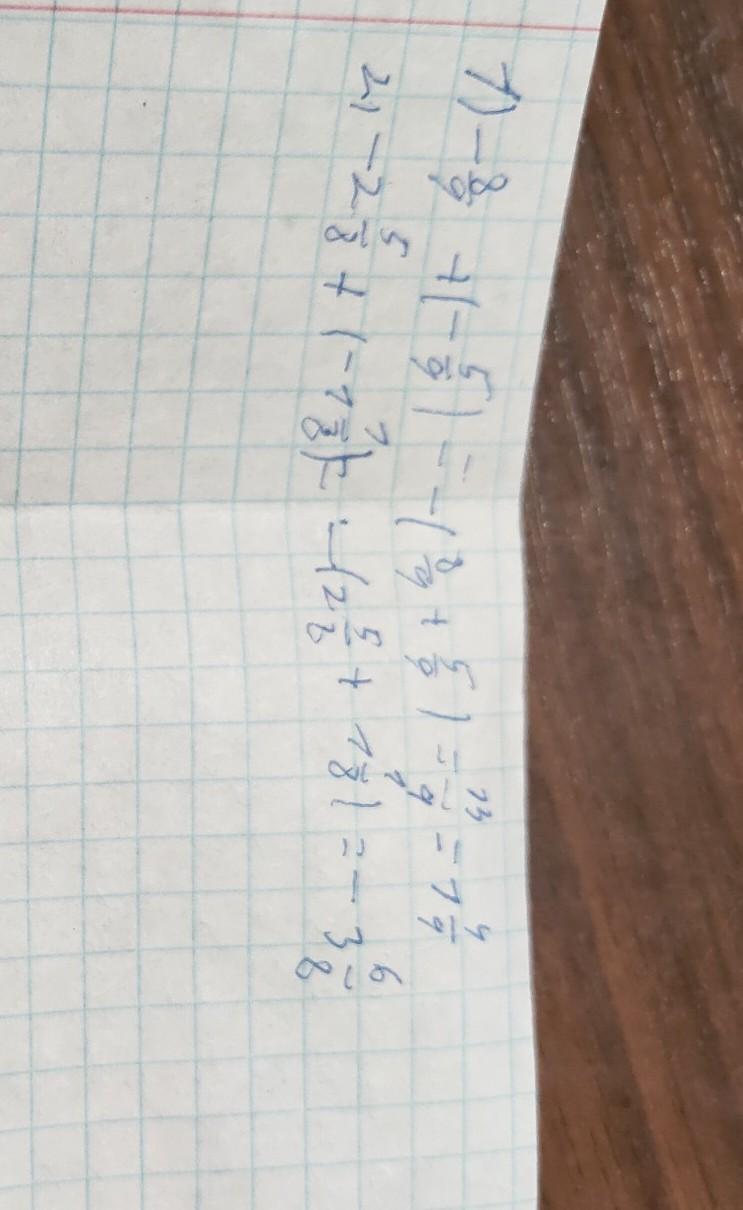 1) -8/9 + (-5/9) = -(8/9 + 5/9) = 13/9 = 1 4/9
2) -2 5/8 + (-1 1/8) = -(2 5/8 + 1 1/8) = -3 6/8